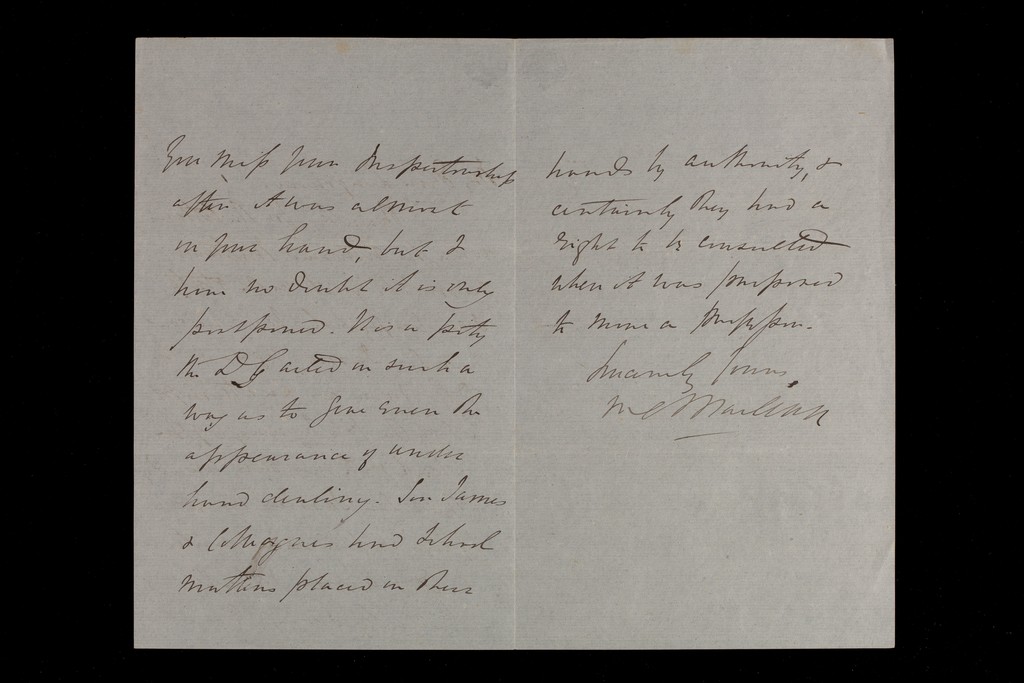 You miss your Inspectorship
after it was almost
in your hand, but I
have no doubt it is only
postponed. It is a pity
the DG acted in such a
way as to give even the
appearance of under
hand dealing. Sir James
& Colleagues had School
matters placed in their
hands by authority, &
certainly they had a
right to be consulted
when it was proposed
to move a
Sincerely Yours,